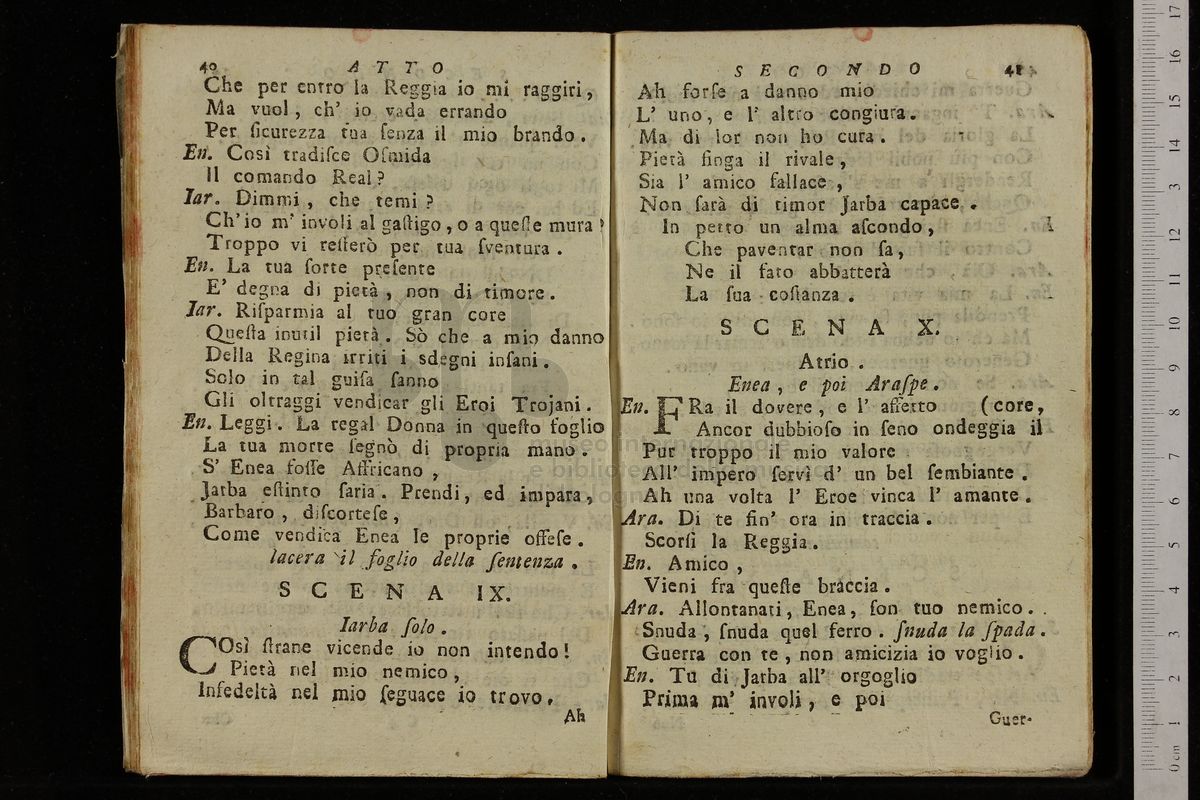 40 ATTO
Che per entro la Reggia io mi raggiri,
Ma vuol, ch' io vada errando
Per ſicurezza tua ſenza il mio brando.
En. Così tradiſce Oſmida
Il comando Real?
Iar. Dimmi, che temi?
Ch' io m' involi al gaſtigo, o a queſte mura?
Troppo vi reſterò per tua ſventura.
En. La tua ſorte preſente
E' degna di pietà, non di timore.
Iar. Riſparmia al tuo gran core
Queſta inutil pietà. Sò che a mio danno
Della Regina irriti i sdegni inſani.
Solo in tal guiſa ſanno
Gli oltraggi vendicar gli Eroi Trojani.
En. Leggi. La regal Donna in queſto foglio
La tua morte ſegnò di propria mano.
S' Enea foſſe Affricano,
Jarba eſtinto ſaria. Prendi, ed impara,
Barbaro, diſcorteſe,
Come vendica Enea le proprie offeſe.
lacera il foglio della ſentenza.
SCENA IX.
Iarba ſolo.
COsì ſtrane vicende io non intendo!
Pietà nel mio nemico,
Infedeltà nel mio ſeguace io trovo,
Ah
SECONDO 41
Ah forſe a danno mio
L' uno, e l' altro congiura.
Ma di lor non ho cura.
Pietà finga il rivale,
Sia l' amico fallace,
Non ſarà di timor Jarba capace.
In petto un alma aſcondo,
Che paventar non ſa,
Ne il fato abbatterà
La ſua coſtanza.
SCENA X.
Atrio.
Enea, e poi Araſpe.
En. FRa il dovere, e l' affetto (core,
Ancor dubbioſo in ſeno ondeggia il
Pur troppo il mio valore
All' impero ſervì d' un bel ſembiante.
Ah una volta l' Eroe vinca l' amante.
Ara. Di te fin' ora in traccia.
Scorſi la Reggia.
En. Amico,
Vieni fra queſte braccia.
Ara. Allontanati, Enea, ſon tuo nemico.
Snuda, ſnuda quel ferro. ſnuda la ſpada.
Guerra con te, non amicizia io voglio.
En. Tu di Jarba all' orgoglio
Prima m' involi, e poi
Guer-